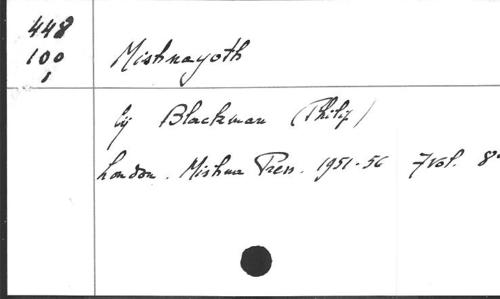 448
100 Mishnayoth
1
by Blackman (Philip)
London. Mishna Press. 1951-56 7 vol. 8°